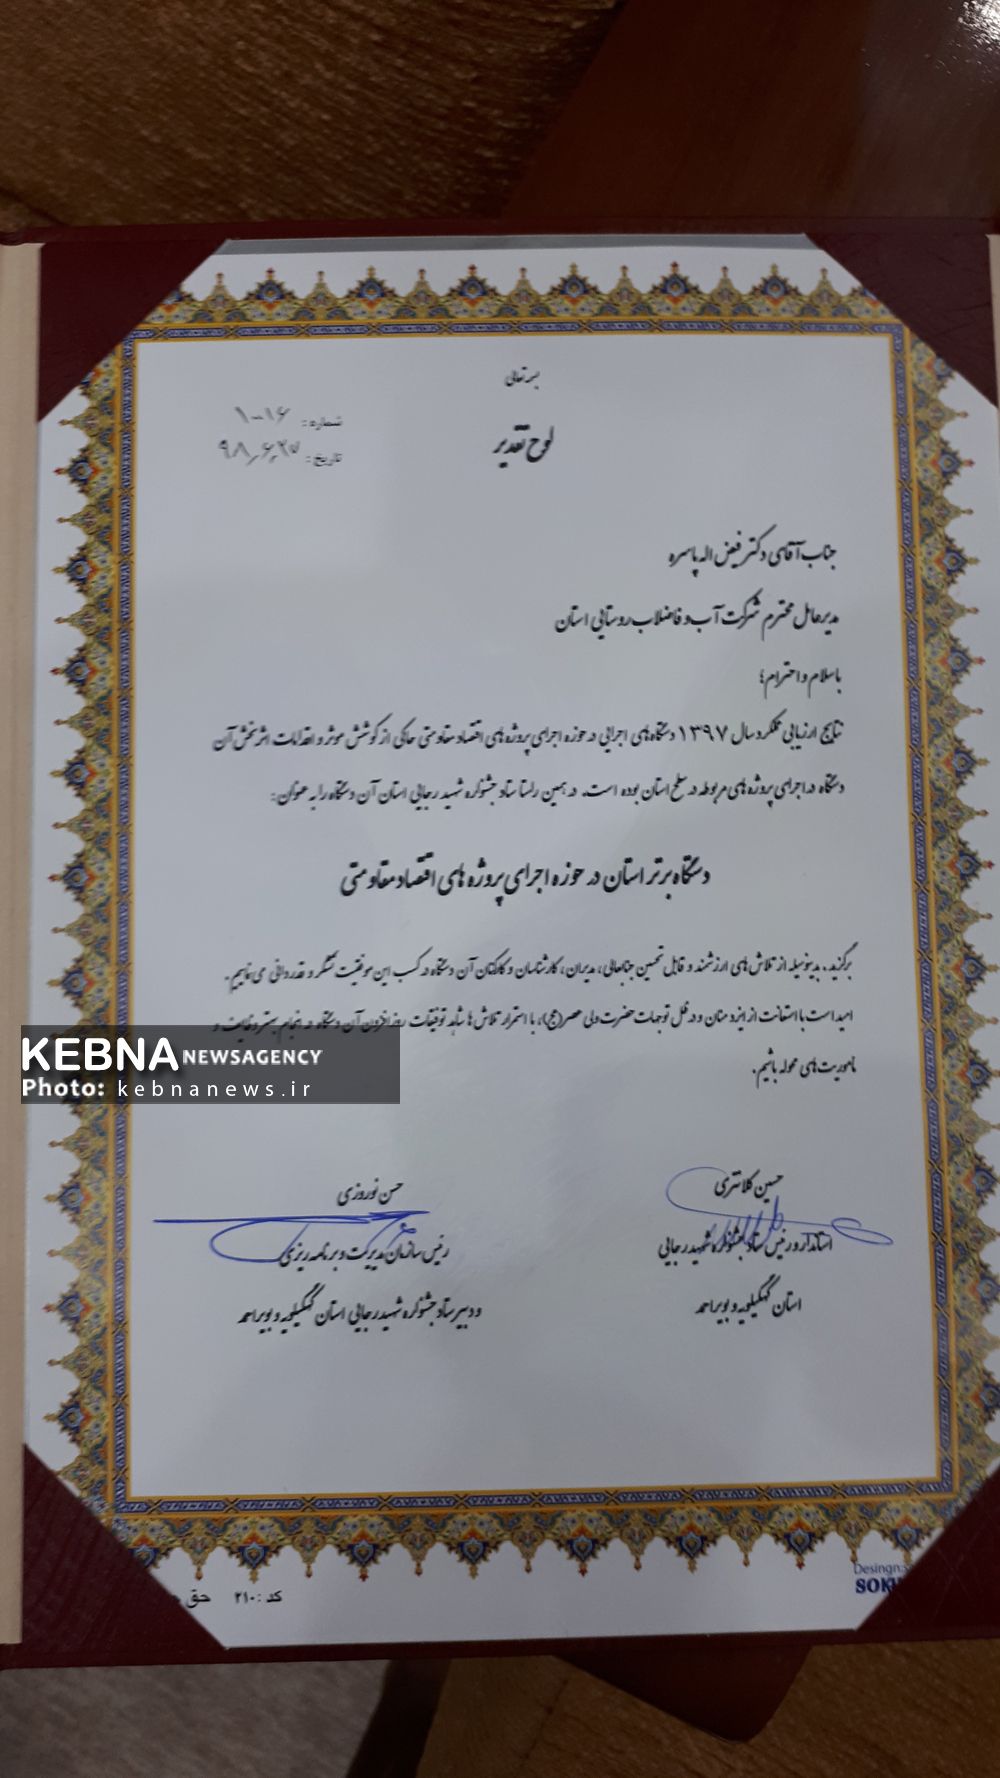 بسمه تعالی
لوح تقدیر
شماره: ۱۰۱۶
تاریخ: ۹۸٫۶٫۲۷
جناب آقای دکتر فیض اله پاسره
مدیرعامل محترم شرکت آب و فاضلاب روستایی استان
باسلام و احترام؛
نتایج ارزیابی عملکرد سال ۱۳۹۷ دستگاه‌های اجرایی در حوزه اجرای پروژه های اقتصاد مقاومتی حاکی از کوشش موثر و اقدامات اثربخش آن
دستگاه در اجرای پروژه های مربوطه در سطح استان بوده است. در همین راستا ستاد جشنواره شهید رجایی استان آن دستگاه را به عنوان:
دستگاه برتر استان در حوزه اجرای پروژه های اقتصاد مقاومتی
برگزید. بدینوسیله از تلاش های ارزشمند و قابل تحسین جنابعالی، مدیران، کارشناسان و کارکنان آن دستگاه در کسب این موفقیت تشکر و قدردانی می نماییم.
امید است با استعانت از ایزد منان و در ظل توجهات حضرت ولی عصر(عج)، با استمرار تلاش ها شاهد توفیقات روزافزون آن دستگاه در انجام بهتر وظایف و
ماموریت های محوله باشیم.
KEBNA NEWSAGENCY
Photo: kebnanews.ir
حسین کلانتری
استاندار و رئیس ستاد جشنواره شهید رجایی
استان کهگیلویه و بویراحمد
حسن نوروزی
رئیس سازمان مدیریت و برنامه ریزی
و دبیر ستاد جشنواره شهید رجایی استان کهگیلویه و بویراحمد
کد: ۲۱۰ حق
Desingn:
SOK